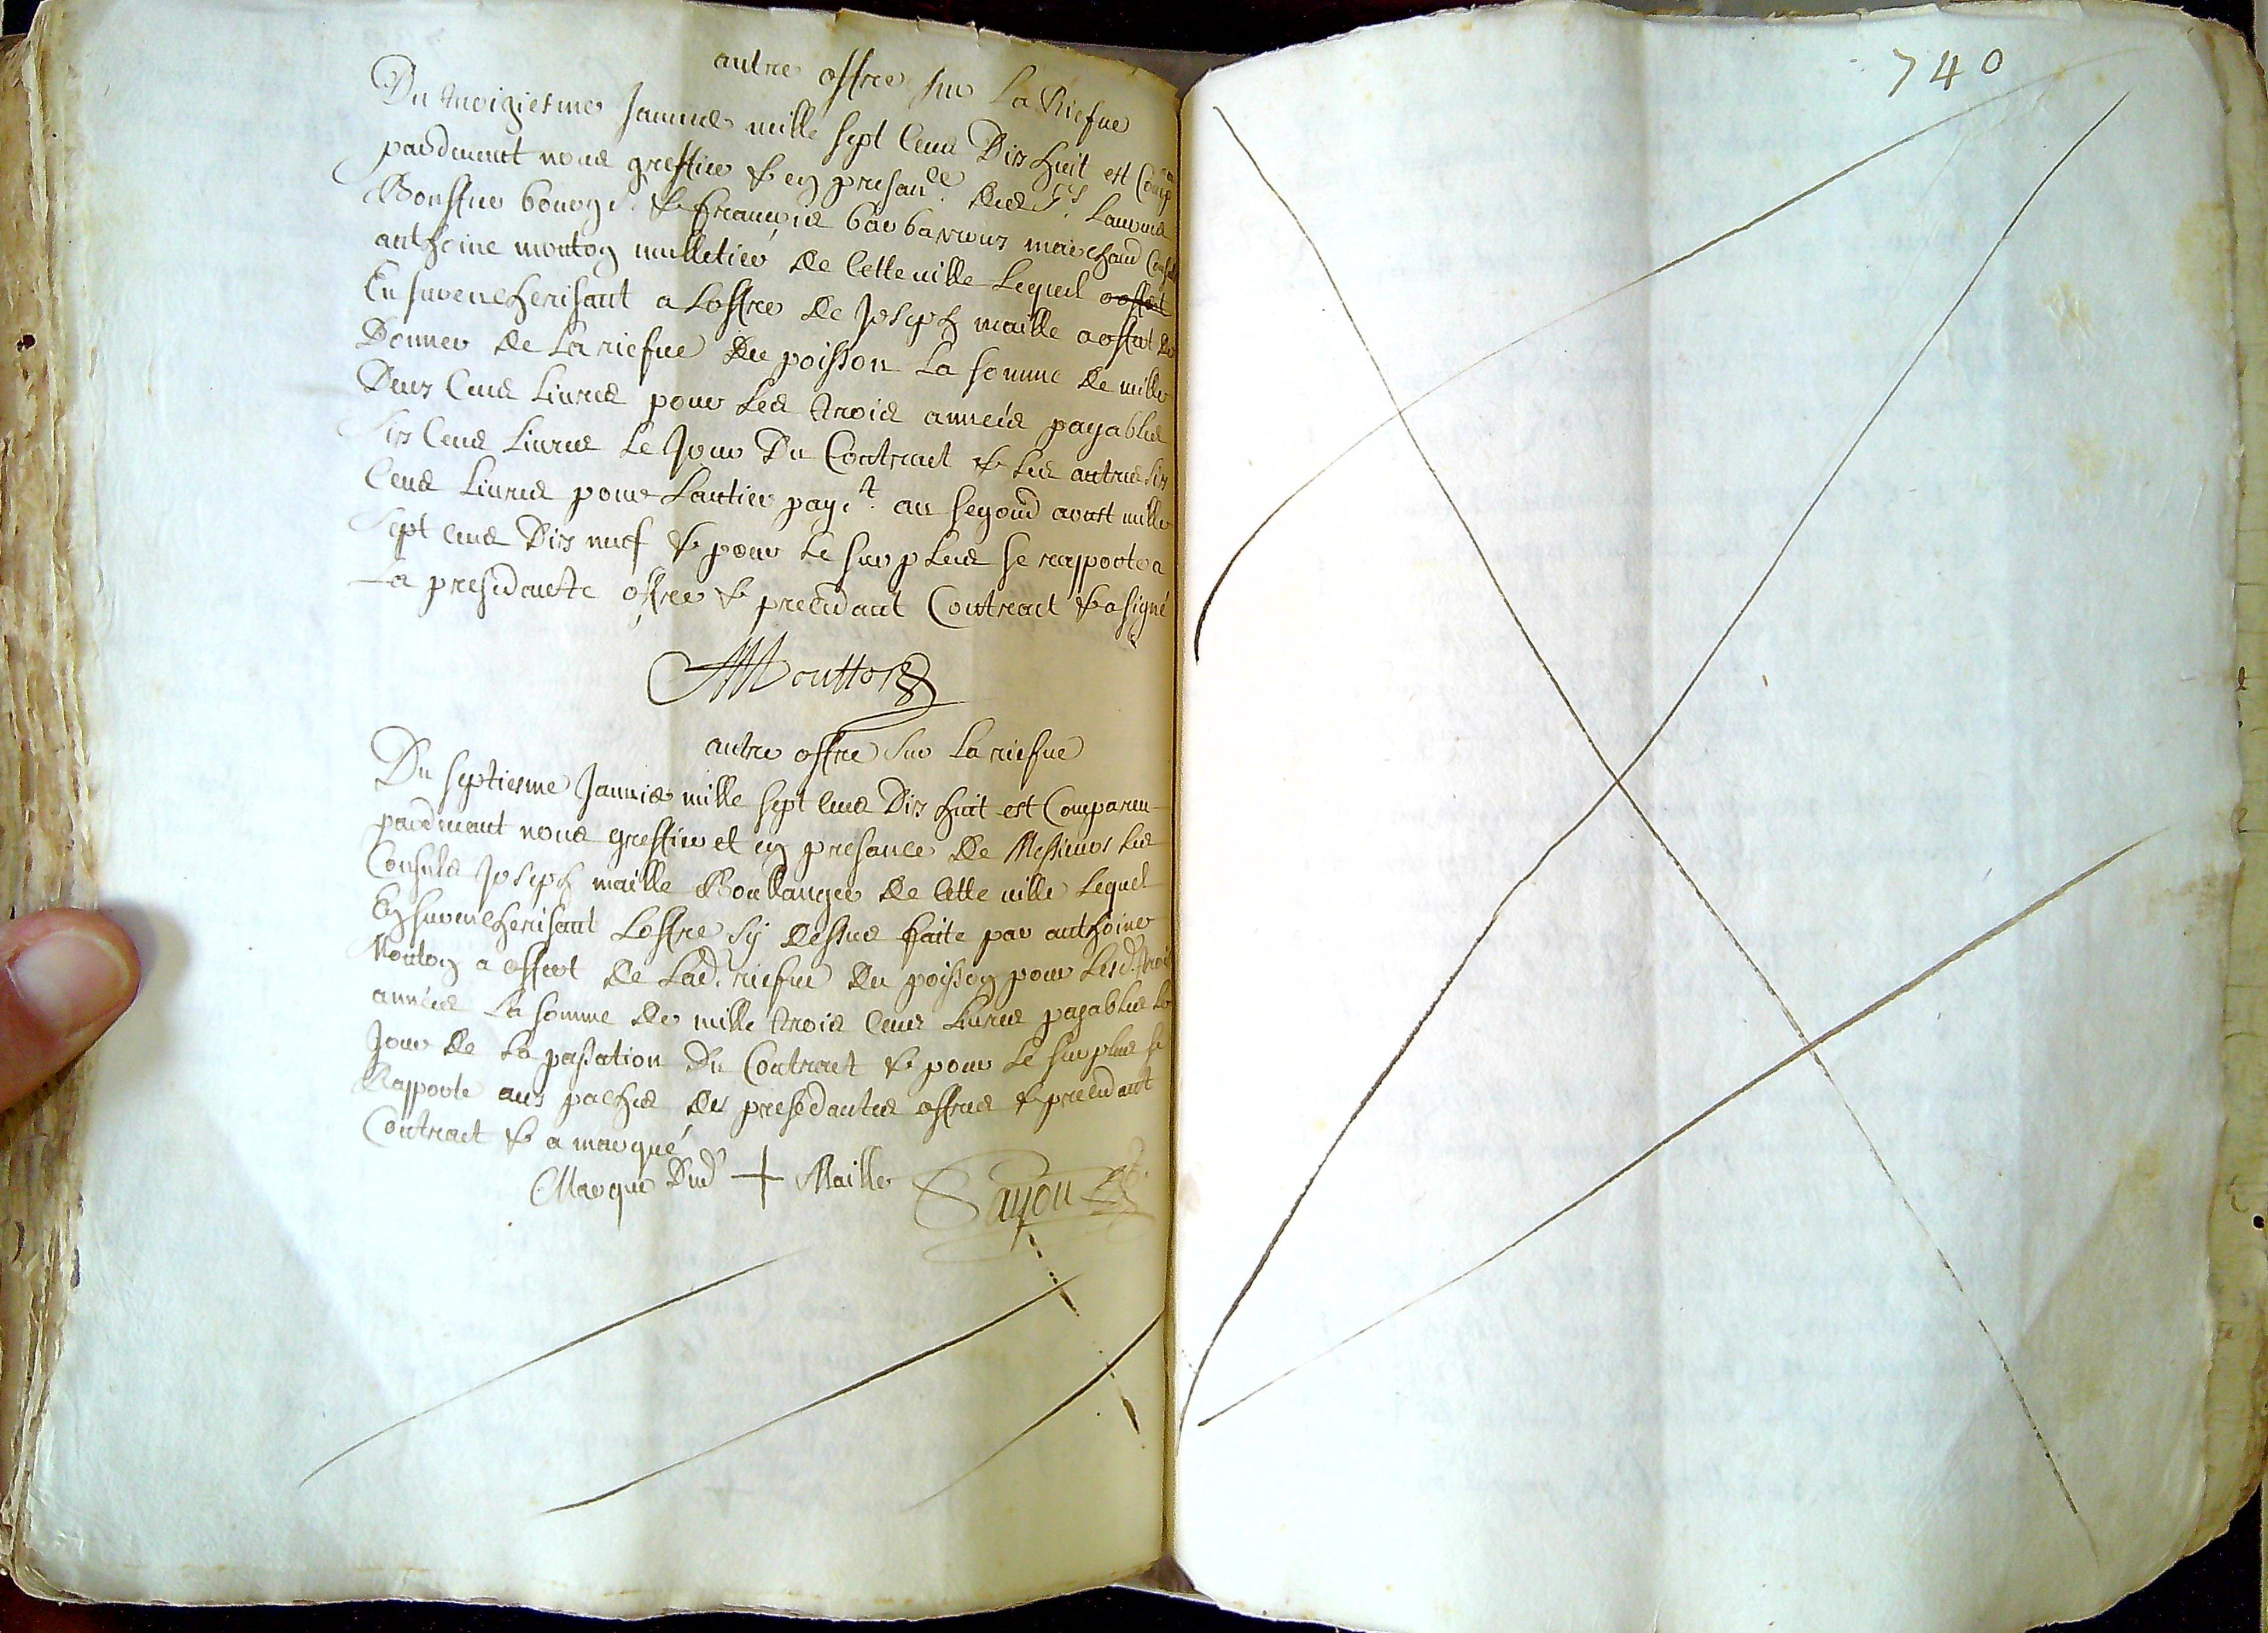 autre offre sur La Riefve
Du troiziesme Janvier mille sept Cens Dix huit est Comp
pardevant nous greffier & en presance des srs Laurens
Bouffier bourgs. & françois barbaroux marchand Consuls
anthoine mouton mulletier de Cette ville Lequel a offert
En surencherisant a Loffre de Joseph maille a offert de
Donner de La riefve du poisson La somme de mille
Deux Cens Livres pour Les trois années payables
Six Cens Livres Le Jour du Contract & Les autres six
Cens Livres pour Lantier paye.t au segond aoust mille
Sept Cens Dix neuf & pour Le surplus se rapporte a
La presedante offre & precedant Contract & a signé
AMoutton
autre offre sur La riefve
Du septiesme Janvier mille sept Cens Dix huit est Compareu
pardevant nous greffier et en presance de Messieurs Les
Consuls Joseph maille Boullanger de Cette ville Lequel
En surencherisant Loffre sy dessus faite par anthoine
Mouton a offert de Lad. riefve du poisson pour Lesd. trois
années La somme de mille trois Cens Livres payables Le
Jour de La passation du Contract & pour Le surplus se
Rapporte aux paches des presedantes offres & precedant
Contract & a marqué
Marque dud + Maille
740